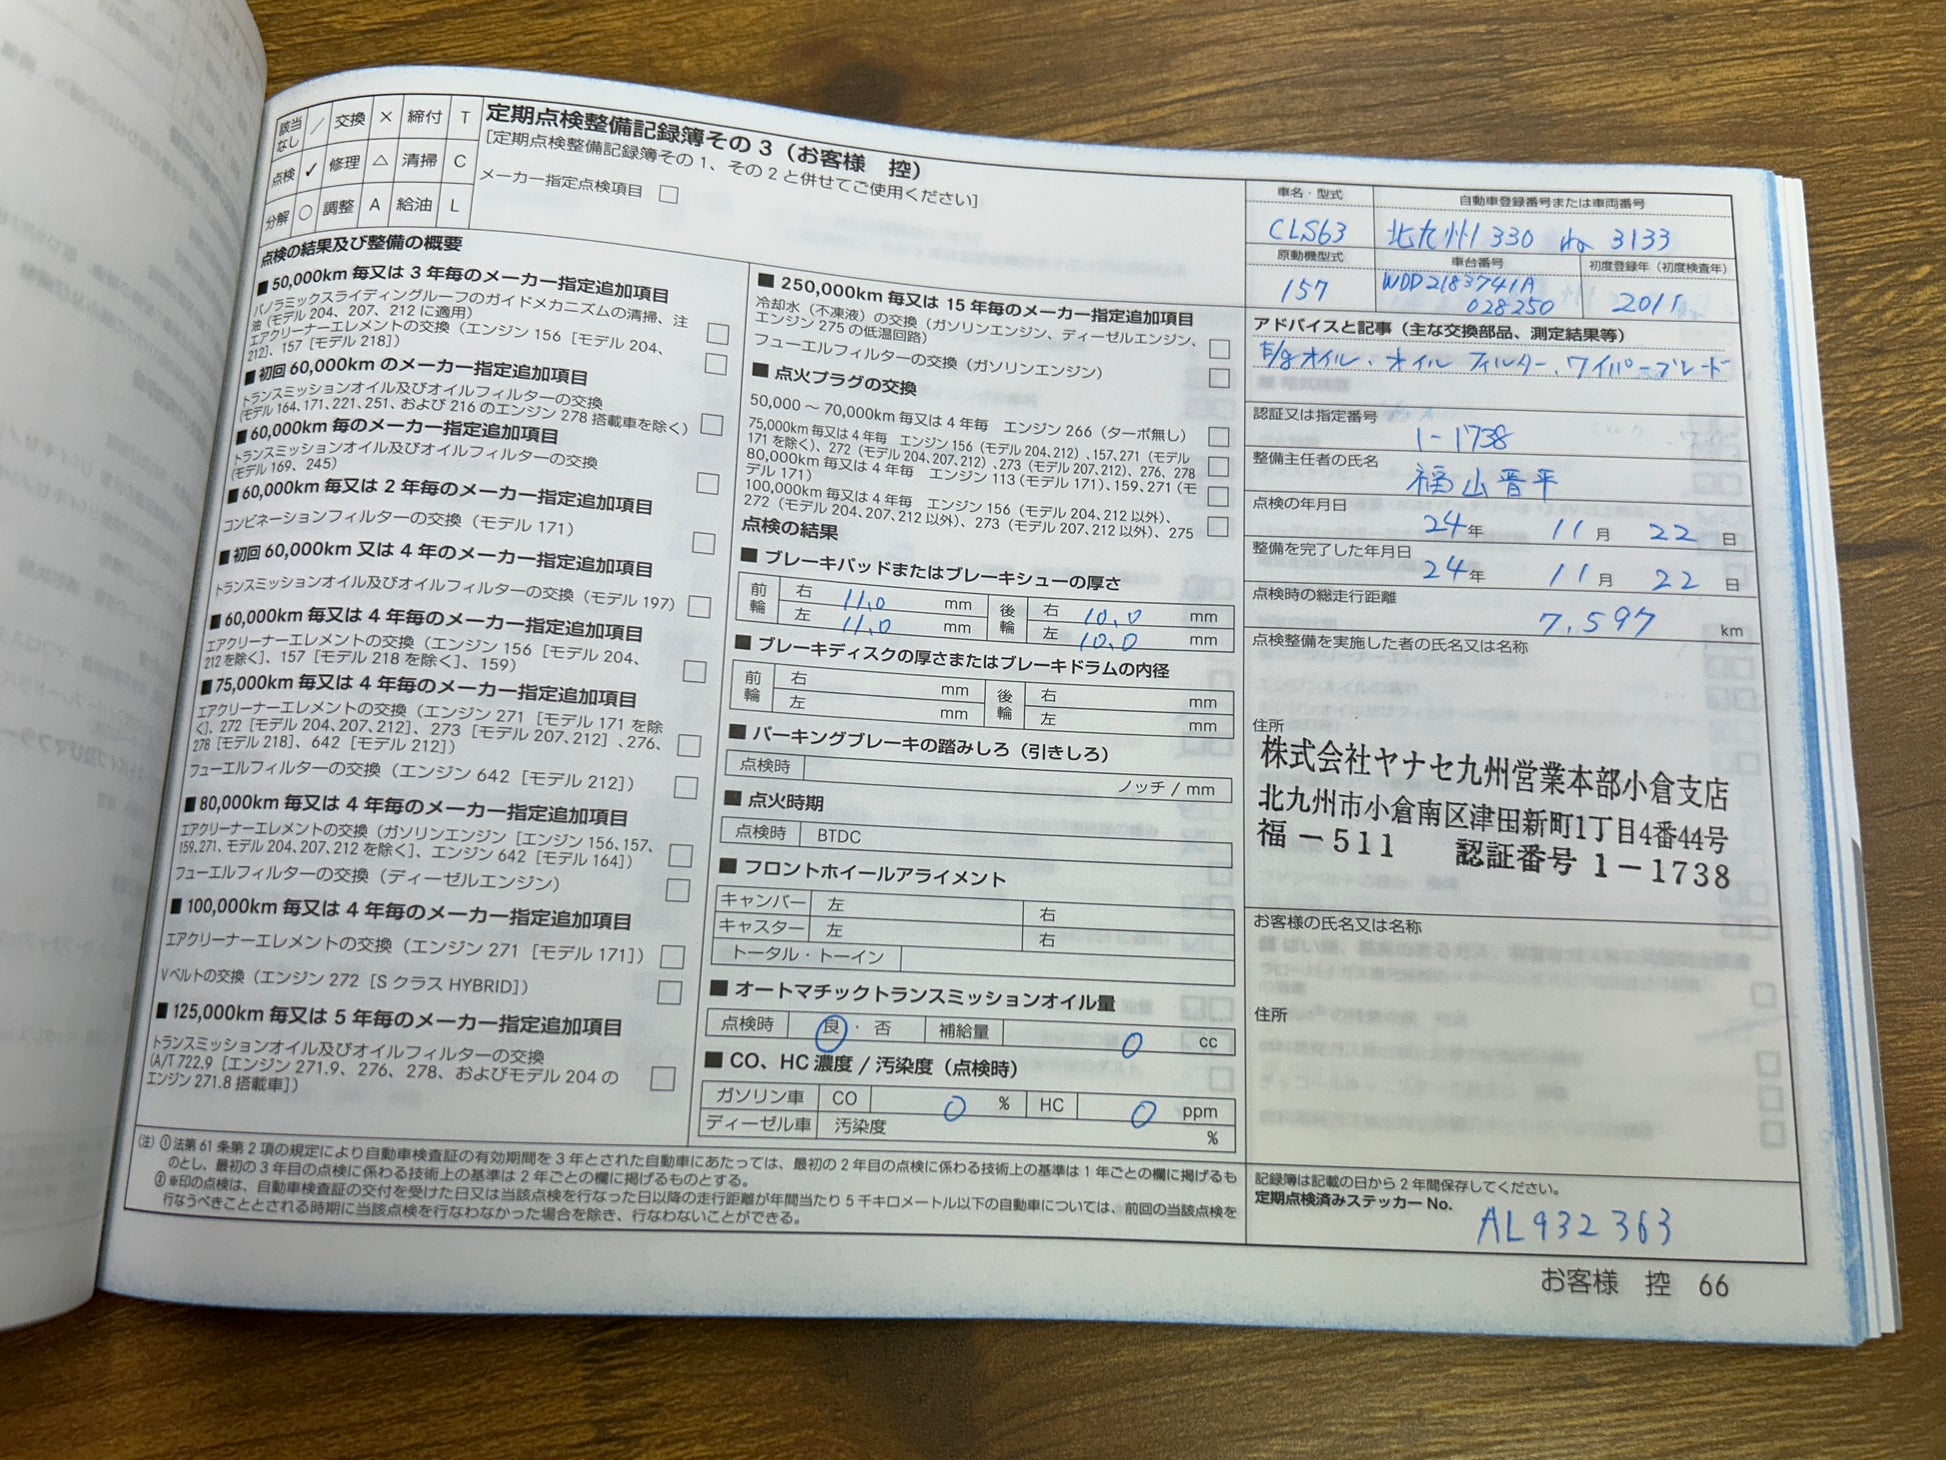 該当なし ／ 交換 × 締付 T
点検 ✓ 修理 △ 清掃 C
分解 ○ 調整 A 給油 L
定期点検整備記録簿その３（お客様　控）
［定期点検整備記録簿その１、その２と併せてご使用ください］
メーカー指定点検項目 □
点検の結果及び整備の概要
■ 50,000km 毎又は 3 年毎のメーカー指定追加項目
パノラミックスライディングルーフのガイドメカニズムの清掃、注
油（モデル 204、207、212 に適用） □
エアクリーナーエレメントの交換（エンジン 156［モデル 204、
212］、157［モデル 218］） □
■ 初回 60,000km のメーカー指定追加項目
トランスミッションオイル及びオイルフィルターの交換
（モデル 164、171、221、251、および 216 のエンジン 278 搭載車を除く） □
■ 60,000km 毎のメーカー指定追加項目
トランスミッションオイル及びオイルフィルターの交換
（モデル 169、245） □
■ 60,000km 毎又は 2 年毎のメーカー指定追加項目
コンビネーションフィルターの交換（モデル 171） □
■ 初回 60,000km 又は 4 年のメーカー指定追加項目
トランスミッションオイル及びオイルフィルターの交換（モデル 197） □
■ 60,000km 毎又は 4 年毎のメーカー指定追加項目
エアクリーナーエレメントの交換（エンジン 156［モデル 204、
212 を除く］、157［モデル 218 を除く］、159） □
■ 75,000km 毎又は 4 年毎のメーカー指定追加項目
エアクリーナーエレメントの交換（エンジン 271［モデル 171 を除
く］、272［モデル 204、207、212］、273［モデル 207、212］、276、
278［モデル 218］、642［モデル 212］） □
フューエルフィルターの交換（エンジン 642［モデル 212］） □
■ 80,000km 毎又は 4 年毎のメーカー指定追加項目
エアクリーナーエレメントの交換（ガソリンエンジン［エンジン 156、157、
159、271、モデル 204、207、212 を除く］、エンジン 642［モデル 164］） □
フューエルフィルターの交換（ディーゼルエンジン） □
■ 100,000km 毎又は 4 年毎のメーカー指定追加項目
エアクリーナーエレメントの交換（エンジン 271［モデル 171］） □
Vベルトの交換（エンジン 272［S クラス HYBRID］） □
■ 125,000km 毎又は 5 年毎のメーカー指定追加項目
トランスミッションオイル及びオイルフィルターの交換
（A/T 722.9［エンジン 271.9、276、278、およびモデル 204 の
エンジン 271.8 搭載車］） □
■ 250,000km 毎又は 15 年毎のメーカー指定追加項目
冷却水（不凍液）の交換（ガソリンエンジン、ディーゼルエンジン、
エンジン 275 の低温回路） □
フューエルフィルターの交換（ガソリンエンジン） □
■ 点火プラグの交換
50,000 ～ 70,000km 毎又は 4 年毎　エンジン 266（ターボ無し） □
75,000km 毎又は 4 年毎　エンジン 156（モデル 204、212）、157、271（モデル
171 を除く）、272（モデル 204、207、212）、273（モデル 207、212）、276、278 □
80,000km 毎又は 4 年毎　エンジン 113（モデル 171）、159、271（モ
デル 171） □
100,000km 毎又は 4 年毎　エンジン 156（モデル 204、212 以外）、
272（モデル 204、207、212 以外）、273（モデル 207、212 以外）、275 □
点検の結果
■ ブレーキパッドまたはブレーキシューの厚さ
前輪 右 11.0 mm 後輪 右 10.0 mm
左 11.0 mm 左 10.0 mm
■ ブレーキディスクの厚さまたはブレーキドラムの内径
前輪 右 mm 後輪 右 mm
左 mm 左 mm
■ パーキングブレーキの踏みしろ（引きしろ）
点検時 ノッチ / mm
■ 点火時期
点検時 BTDC
■ フロントホイールアライメント
キャンバー 左 右
キャスター 左 右
トータル・トーイン
■ オートマチックトランスミッションオイル量
点検時 良・否 補給量 0 cc
■ CO、HC 濃度 / 汚染度（点検時）
ガソリン車 CO 0 % HC 0 ppm
ディーゼル車 汚染度 %
（注）①法第 61 条第 2 項の規定により自動車検査証の有効期間を 3 年とされた自動車にあたっては、最初の 2 年目の点検に係わる技術上の基準は 1 年ごとの欄に掲げるも
のとし、最初の 3 年目の点検に係わる技術上の基準は 2 年ごとの欄に掲げるものとする。
②※印の点検は、自動車検査証の交付を受けた日又は当該点検を行なった日以降の走行距離が年間当たり 5 千キロメートル以下の自動車については、前回の当該点検を
行なうべきこととされる時期に当該点検を行なわなかった場合を除き、行なわないことができる。
車名・型式 自動車登録番号または車両番号
CLS63 北九州 330 ね 3133
原動機型式 車台番号 初度登録年（初度検査年）
157 WDD2183741A
028250 2011
アドバイスと記事（主な交換部品、測定結果等）
E/gオイル、オイルフィルター、ワイパーブレード
認証又は指定番号
1-1738
整備主任者の氏名
福山晋平
点検の年月日
24年 11月 22日
整備を完了した年月日
24年 11月 22日
点検時の総走行距離
7,597 km
点検整備を実施した者の氏名又は名称
住所
株式会社ヤナセ九州営業本部小倉支店
北九州市小倉南区津田新町1丁目4番44号
福－511　認証番号 1－1738
お客様の氏名又は名称
住所
記録簿は記載の日から 2 年間保存してください。
定期点検済みステッカー No.
AL932363
お客様　控　66